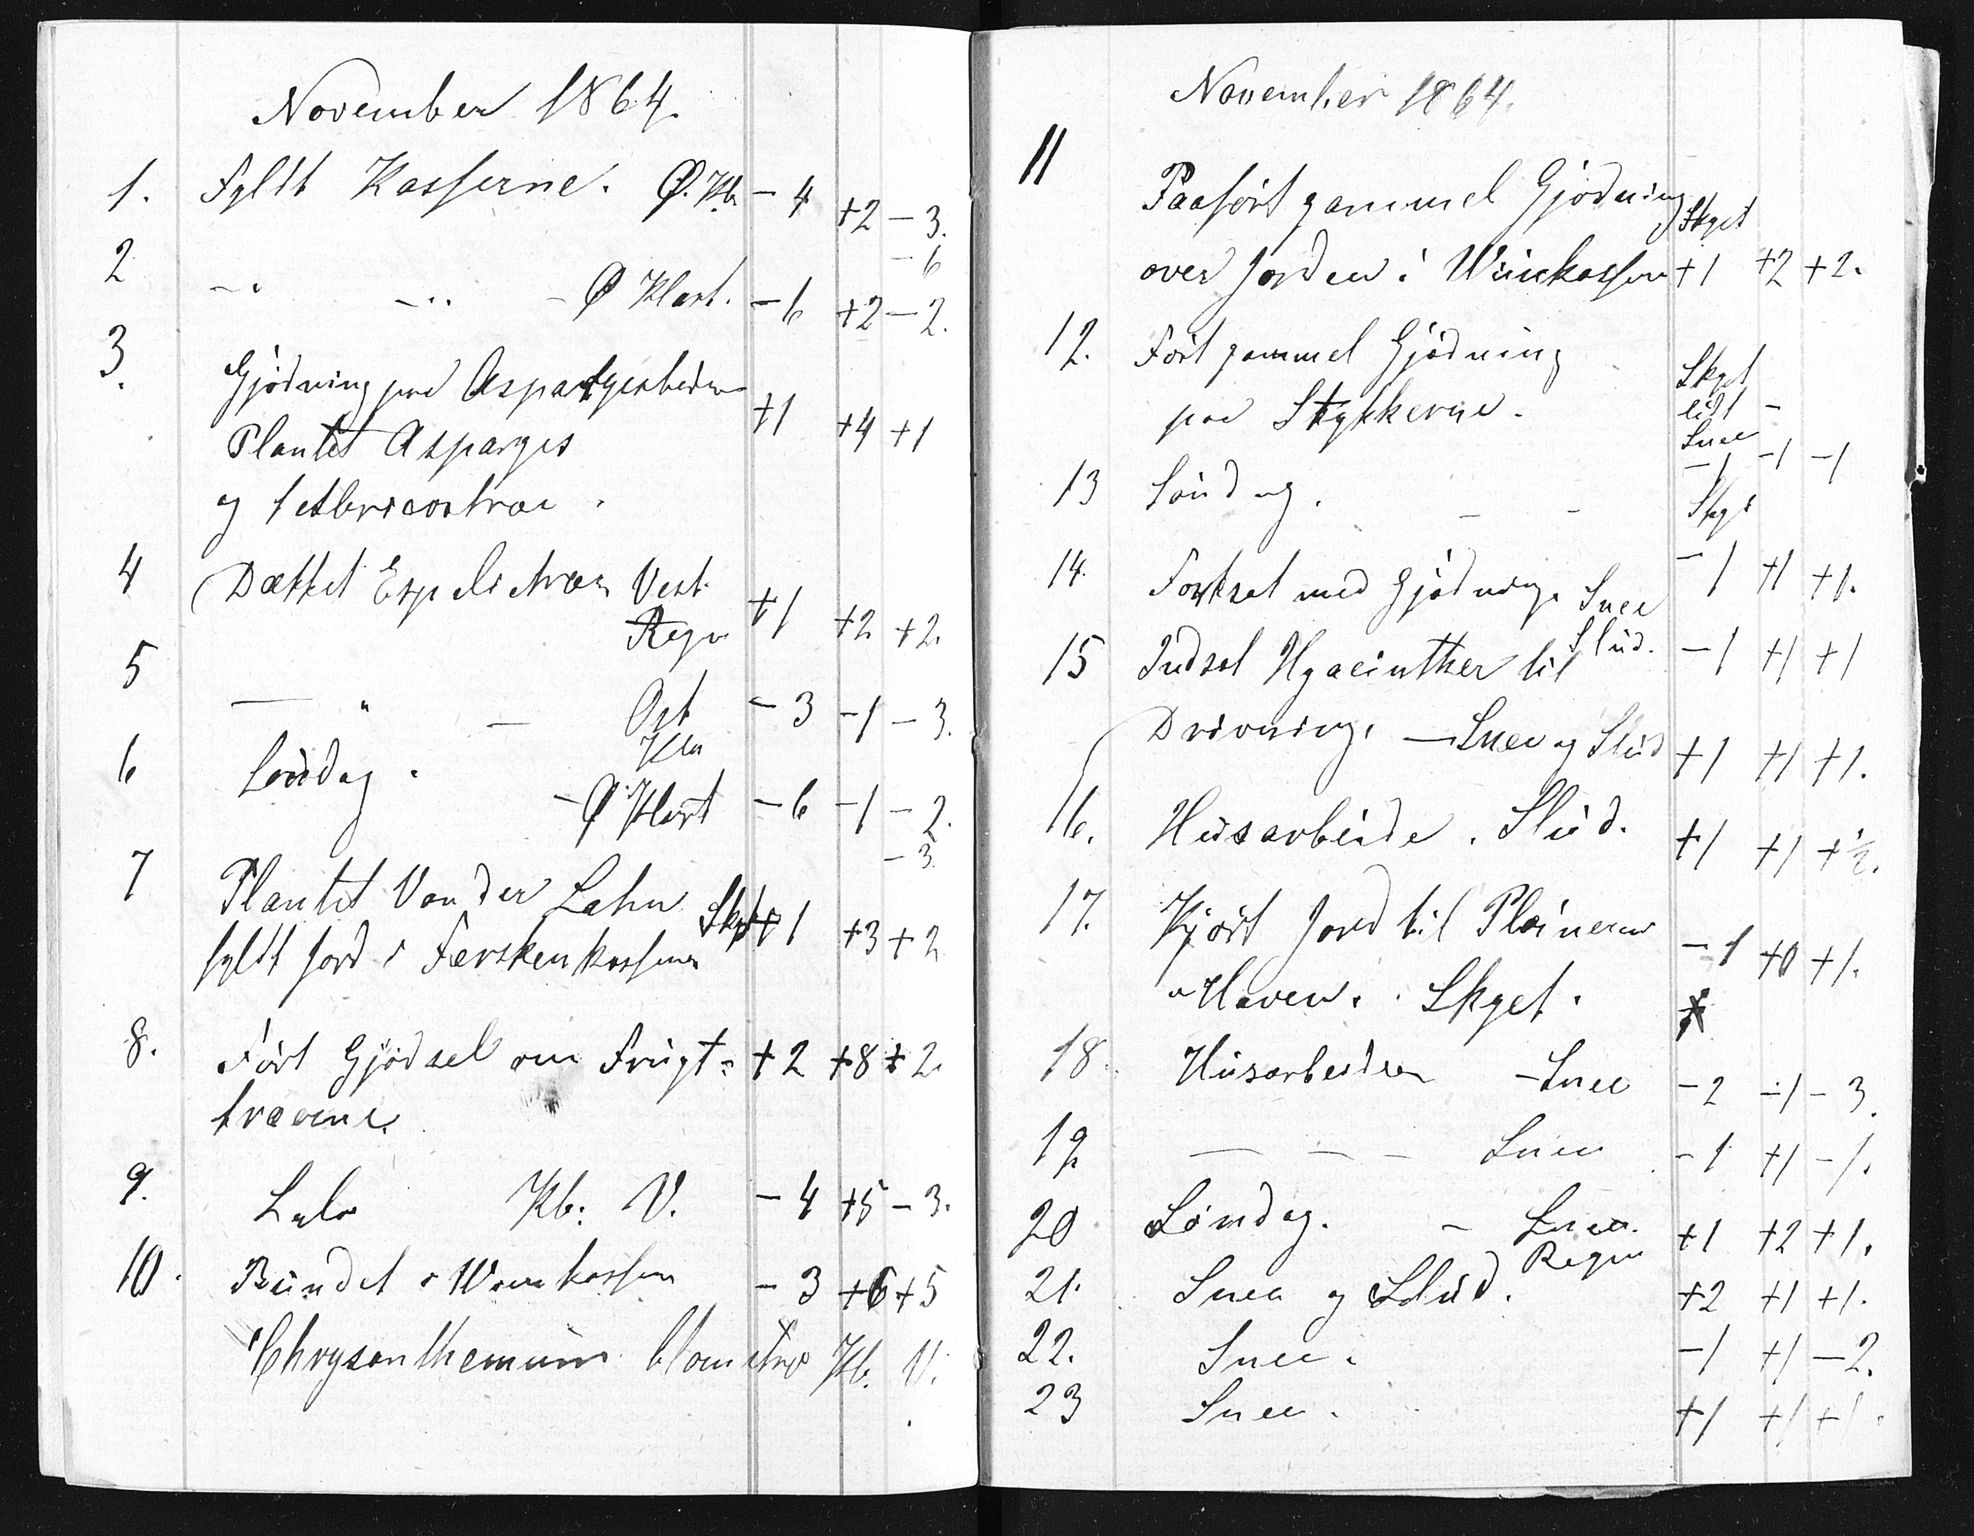 November 1864.
1. Fyldt Kasserne. Ø. Kl. - 4 +2 - 3.
- 6
2 -" -" - Ø Klart. - 6 +2 - 2.
3. Gjødning paa Aspargesbedene
+1 +4 +1
Plantet Asparges
og 1 Abricostræe.
4 Dækket Espelietræer Vest
Regn +1 +2 +2.
5 — " — Ost - 3 -1 - 3.
Kla
6 Søndag. - Ø Klart - 6 -1 - 2.
- 3.
7 Plantet Van der Lahn
Skyet +1 +3 +2
fyldt Jord i Ferskenkassen
8. Ført Gjødsel om Frugt= +2 +8 +2.
træerne.
9. Kb: V. - 4 +5 - 3.
10. Bundet i Viinkassen - 3 +6 +5
Chrysanthemum blomstre Kl. V.
November 1864.
11 Paaført gammel Gjødning Skyet
over Jorden i Viinkassen +1 +2 +2.
12. Ført gammel Gjødning
paa Stykkerne. Skyet
lidt -
Snee
-1 -1 -1
13 Søndag. - - Skyet
-1 +1 +1.
14. Fortsat med Gjødning. Snee
Slud. -1 +1 +1
15 Indsat Hyacinther til
Drivning. — Snee og Slud +1 +1 +1.
16. Husarbeide. Slud. +1 +1 +½.
17. Kjørt Jord til Plainerne
-1 +0 +1.
i Haven. Skyet.
18 Husarbeider - Snee - 2 -1 - 3.
19. — — - Snee - 1 +1 -1.
20 Søndag. - Snee. +1 +2 +1.
Regn
21. Snee og Slud. +2 +1 +1.
22. Snee. -1 +1 -2.
23 Snee. +1 +1 +1.